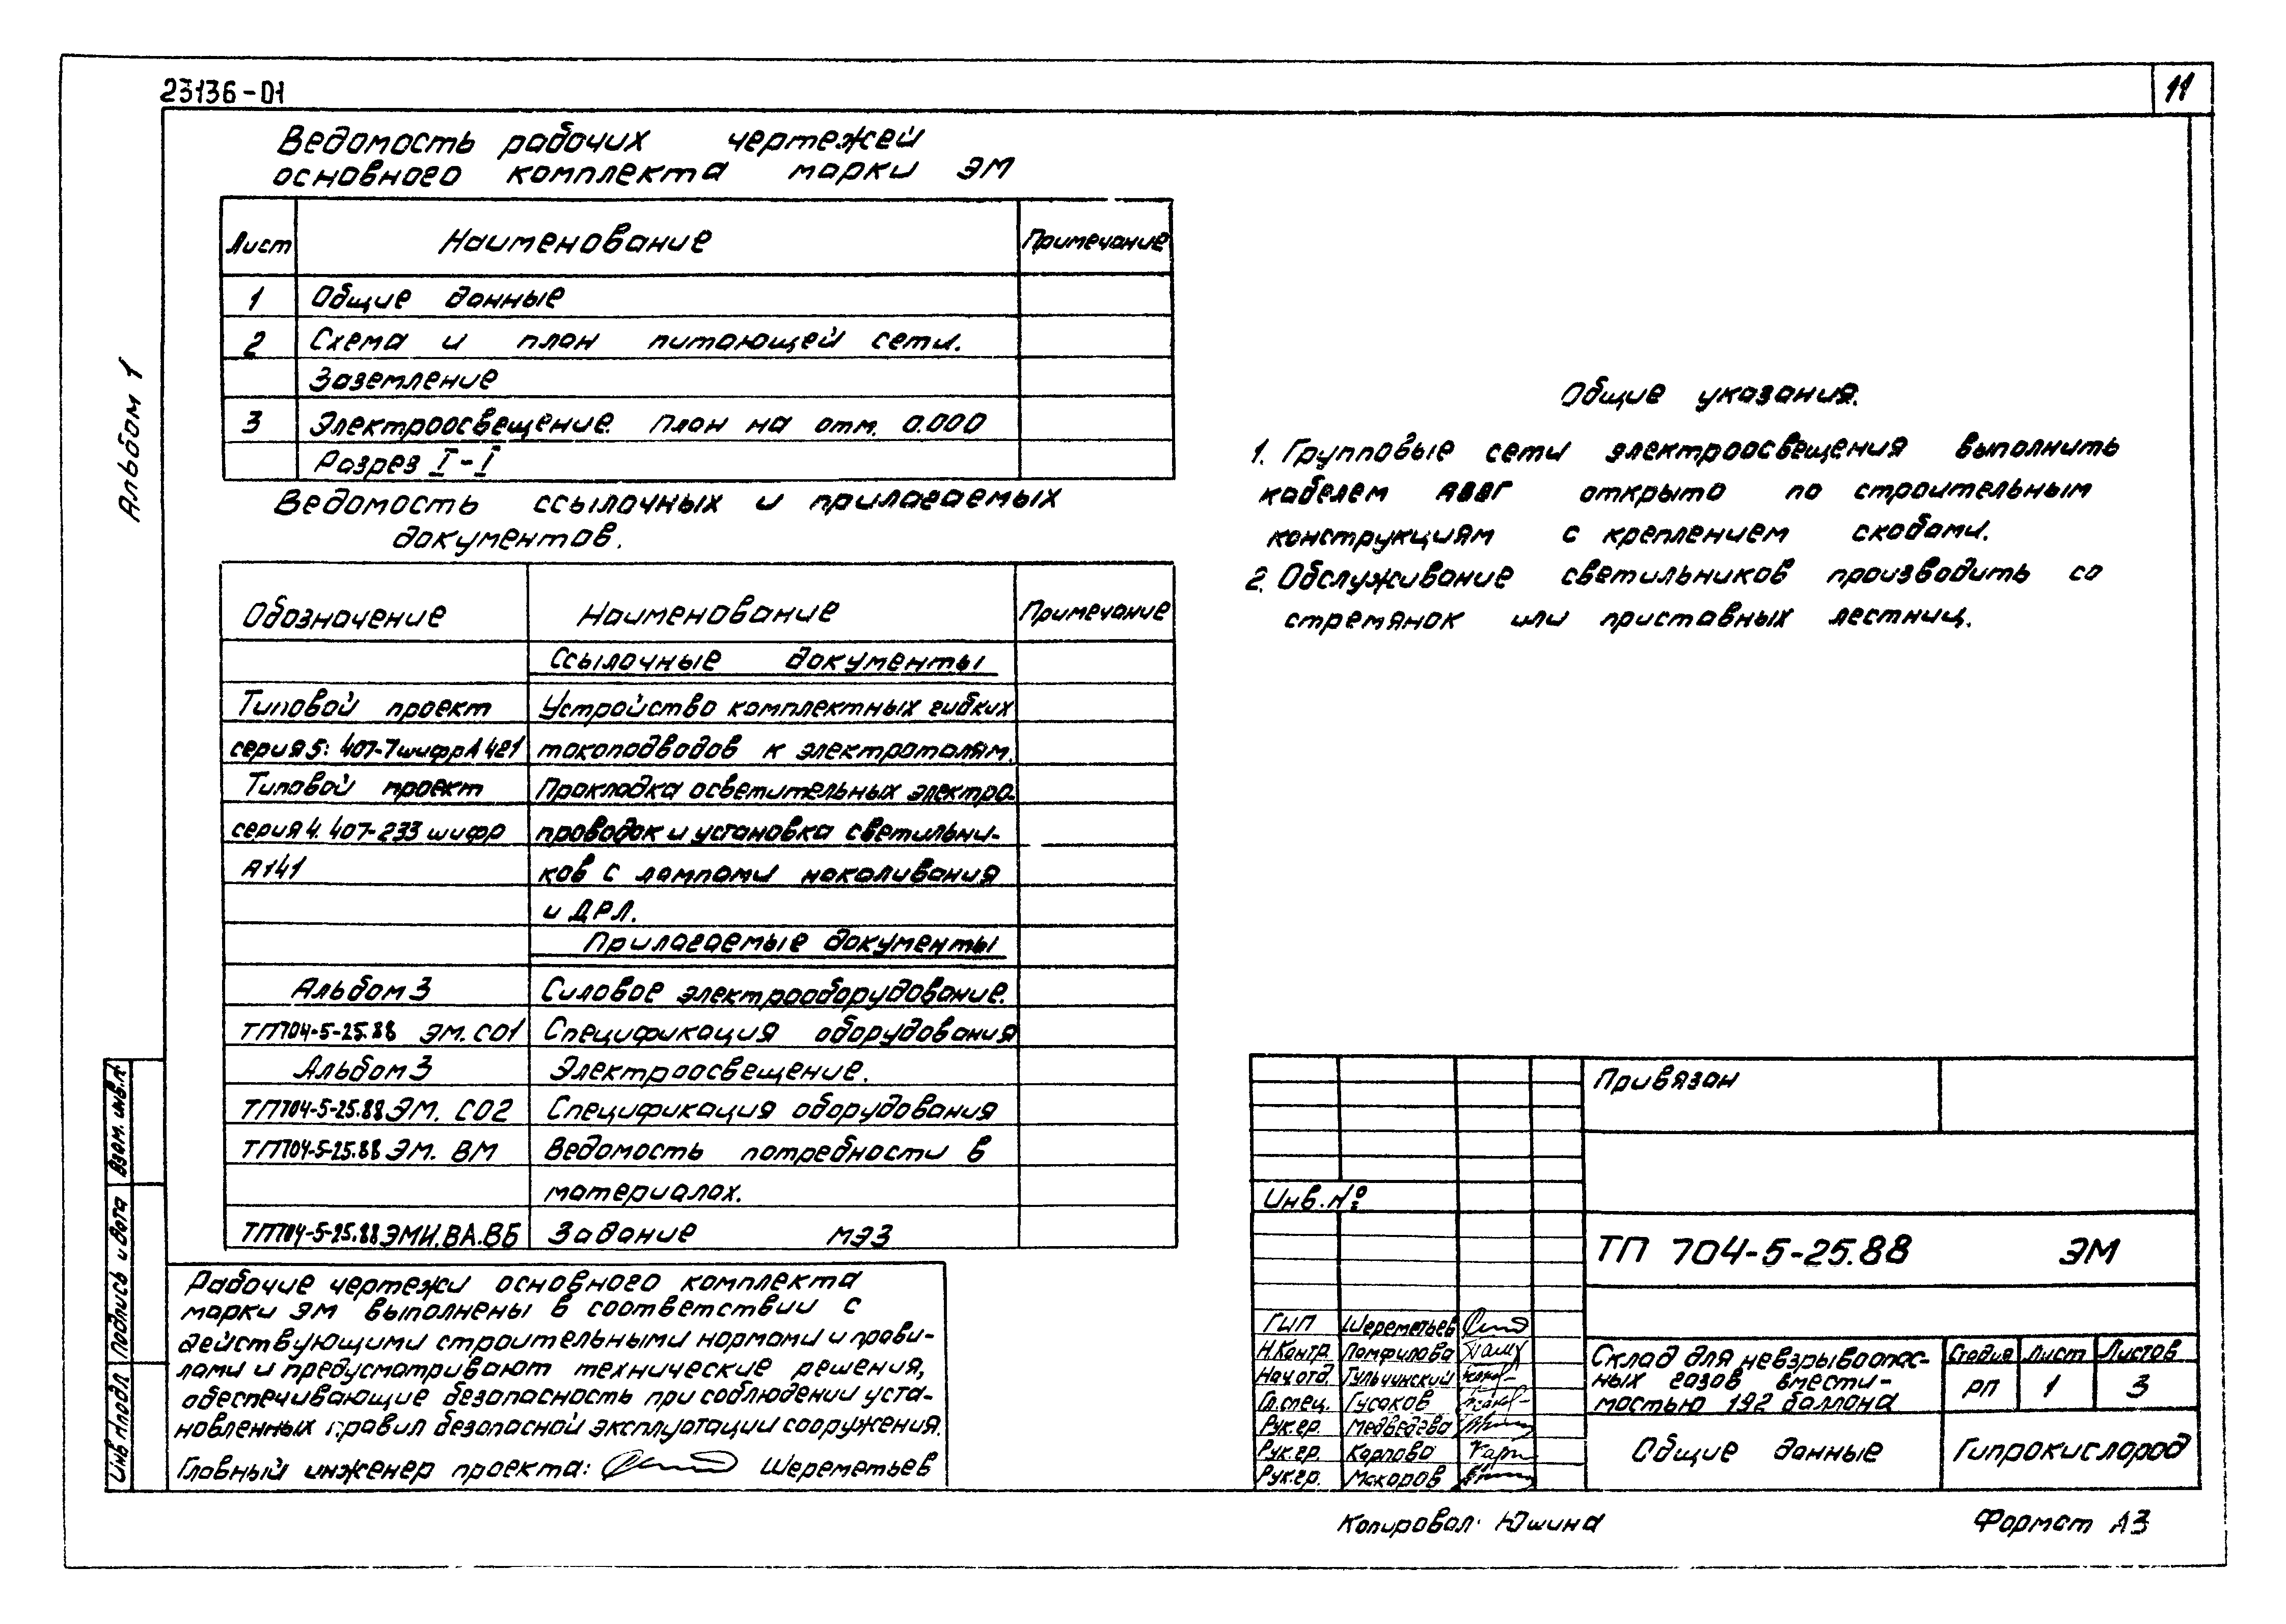 23136-01
11
Альбом 1
Ведомость рабочих чертежей
основного комплекта марки ЭМ
Лист Наименование Примечание
1 Общие данные
2 Схема и план питающей сети.
Заземление
3 Электроосвещение план на отм. 0.000
Разрез I-I
Ведомость ссылочных и прилагаемых
документов.
Обозначение Наименование Примечание
Ссылочные документы
Типовой проект Устройство комплектных гибких
серия 5: 407-7 шифр А 421 токоподводов к электроталям.
Типовой проект Прокладка осветительных электро-
серия 4. 407-233 шифр проводок и установка светильни-
А141 ков с лампами накаливания
и ДРЛ.
Прилагаемые документы
Альбом 3 Силовое электрооборудование.
ТП704-5-25.88 ЭМ. СО1 Спецификация оборудования
Альбом 3 Электроосвещение.
ТП704-5-25.88 ЭМ. СО2 Спецификация оборудования
ТП704-5-25.88 ЭМ. ВМ Ведомость потребности в
материалах.
ТП704-5-25.88 ЭМИ.ВА.ВБ Задание МЭЗ
Рабочие чертежи основного комплекта
марки ЭМ выполнены в соответствии с
действующими строительными нормами и прави-
лами и предусматривают технические решения,
обеспечивающие безопасность при соблюдении уста-
новленных правил безопасной эксплуатации сооружения.
Главный инженер проекта: Шереметьев
Общие указания.
1. Групповые сети электроосвещения выполнить
кабелем АВВГ открыто по строительным
конструкциям с креплением скобами.
2. Обслуживание светильников производить со
стремянок или приставных лестниц.
Привязан
Инв. №
ТП 704-5-25.88 ЭМ
ГИП Шереметьев
Н.Контр. Памфилова
Нач.отд. Тульчинский
Гл.спец. Гусаков
Рук.гр. Медведева
Рук.гр. Карпова
Рук.гр. Макаров
Склад для невзрывоопас-
ных газов вмести-
мостью 192 баллона
Стадия Лист Листов
РП 1 3
Общие данные
Гипрокислород
Взам. инв.№
Подпись и дата
Инв № подл.
Копировал: Юшина
Формат А3